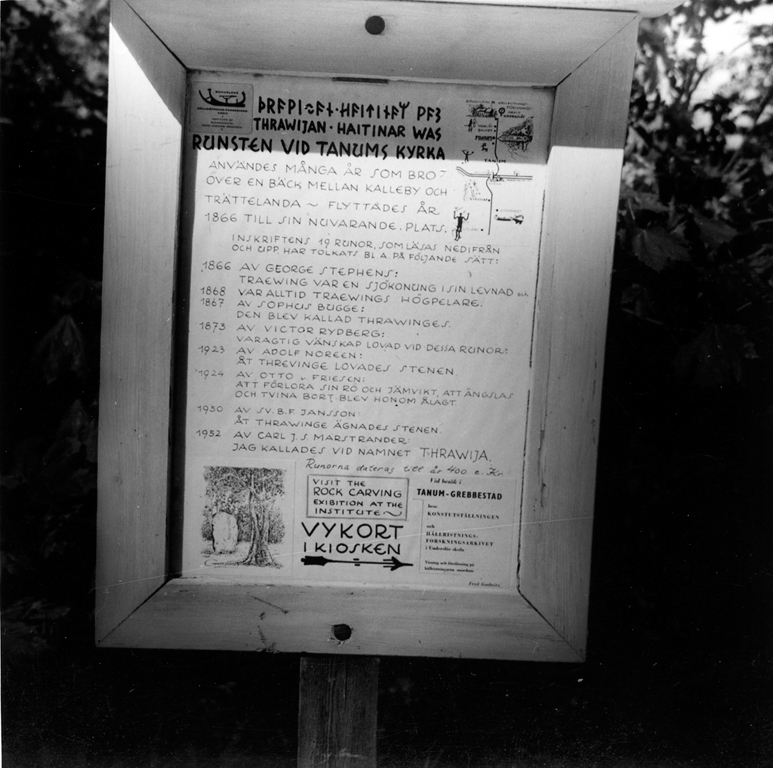 ᚦᚱᚨᚹᛁᛃᚨᚾ · ᚺᚨᛁᛏᛁᚾᚨᛉ ᚹᚨᛊ
THRAWIJAN · HAITINAR WAS
RUNSTEN VID TANUMS KYRKA
ANVÄNDES MÅNGA ÅR SOM BRO
ÖVER EN BÄCK MELLAN KALLEBY OCH
TRÄTTELANDA ~ FLYTTADES ÅR
1866 TILL SIN NUVARANDE PLATS.
INSKRIFTENS 19 RUNOR, SOM LÄSAS NEDIFRÅN
OCH UPP, HAR TOLKATS BL A. PÅ FÖLJANDE SÄTT:
1866 AV GEORGE STEPHENS:
TRAEWING VAR EN SJÖKONUNG I SIN LEVNAD och
1868 VAR ALLTID TRAEWINGS HÖGPELARE.
1867 AV SOPHUS BUGGE:
DEN BLEV KALLAD THRAWINGES.
1873 AV VICTOR RYDBERG:
VARAGTIG VÄNSKAP LOVAD VID DESSA RUNOR:
1923 AV ADOLF NOREEN:
ÅT THREVINGE LOVADES STENEN.
1924 AV OTTO v FRIESEN:
ATT FÖRLORA SIN RO OCH JÄMVIKT, ATT ÄNGSLAS
OCH TVINA BORT BLEV HONOM ÅLAGT.
1930 AV SV. B. F. JANSSON:
ÅT THRAWINGE ÄGNADES STENEN.
1952 AV CARL J. S. MARSTRANDER:
JAG KALLADES VID NAMNET THRAWIJA.
Runorna dateras till år 400 e. Kr.
VISIT THE
ROCK CARVING
EXIBITION AT THE
INSTITUTE
VYKORT
I KIOSKEN
Vid besök i
TANUM-GREBBESTAD
bese
KONSTUTSTÄLLNINGEN
och
HÄLLRISTNINGS-
FORSKNINGSARKIVET
i Underslös skola
Visning och föreläsning på